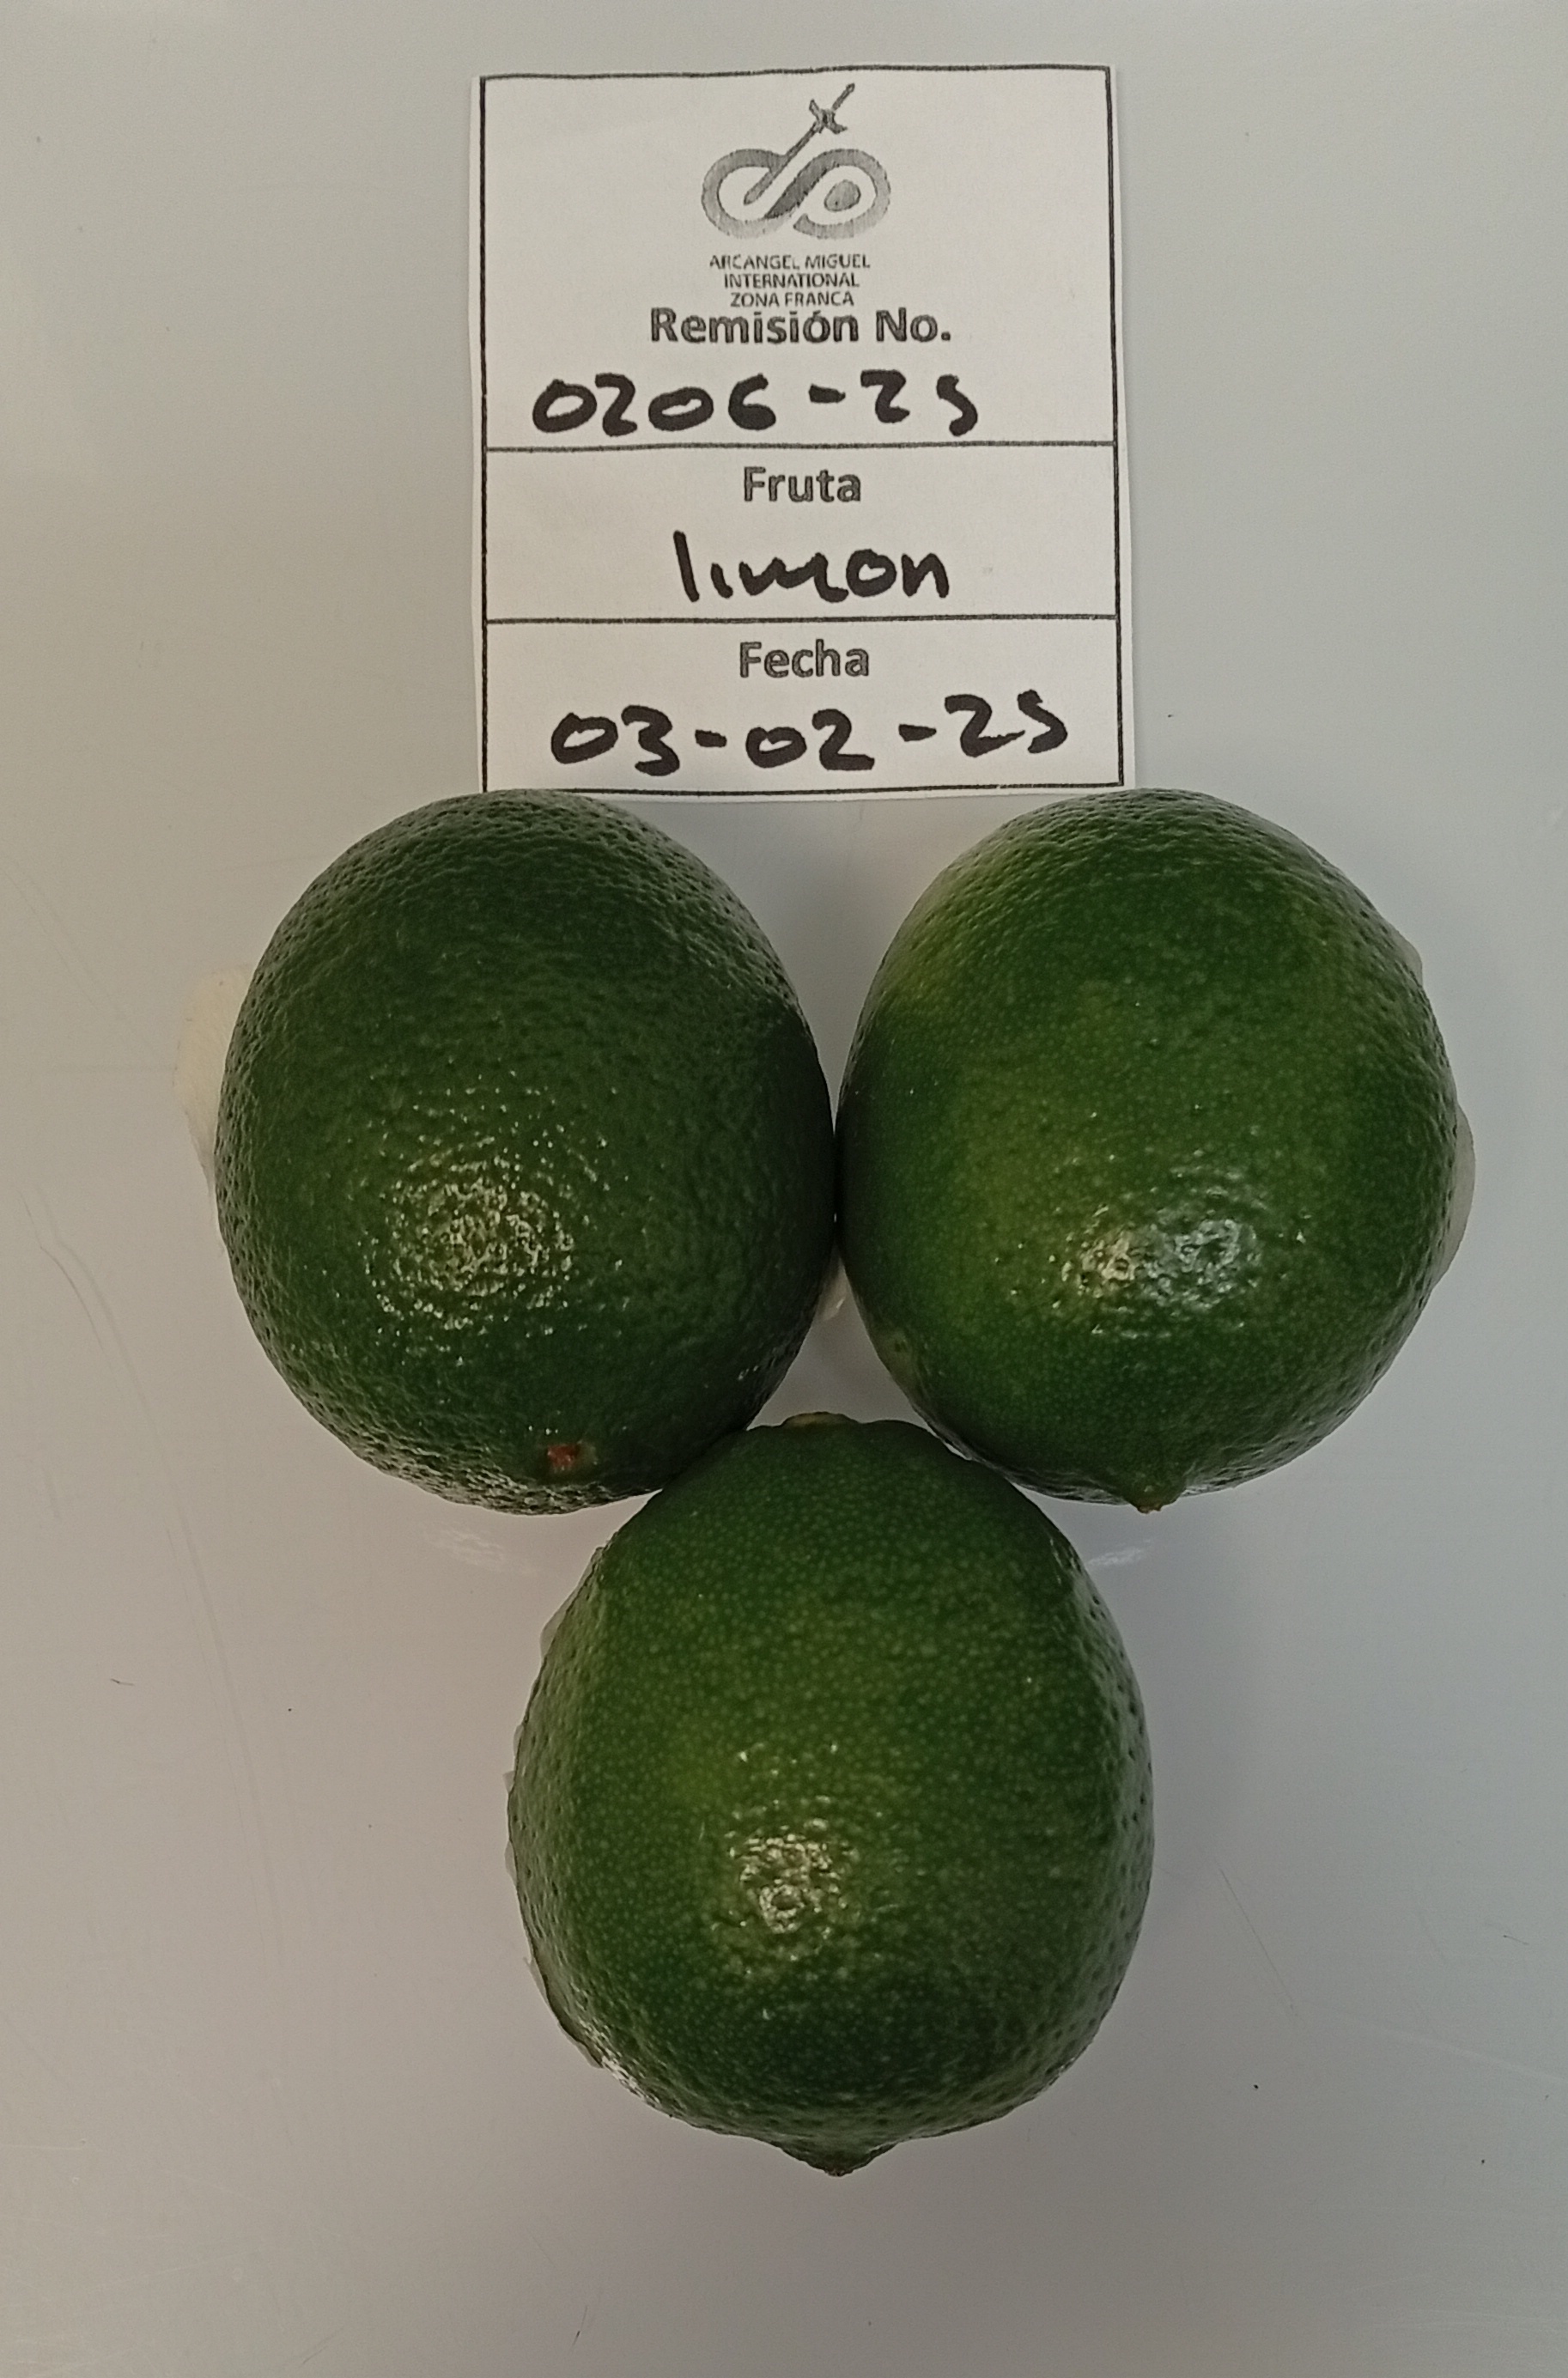 ARCANGEL MIGUEL
INTERNATIONAL
ZONA FRANCA
Remisión No.
0206-25
Fruta
limon
Fecha
03-02-25